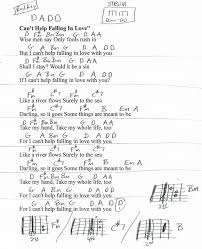 DADD
"Can't Help Falling In Love"
D F#m Bm Bm G D A A
Wise men say Only fools rush in
G A Bm G D A D D
But I can't help falling in love with you
D F#m Bm Bm G D A A
Shall I stay? Would it be a sin
G A Bm G D A D D
If I can't help falling in love with you?
F#m C#7 F#m C#7
Like a river flows Surely to the sea
F#m C#7 B Em A
Darling, so it goes Some things are meant to be
D F#m Bm Bm G D A A
Take my hand, Take my whole life, too
G A Bm G D A D D
For I can't help falling in love with you
F#m C#7 F#m C#7
Like a river flows Surely to the sea
F#m C#7 B Em A
Darling, so it goes Some things are meant to be
D F#m Bm Bm G D A A
Take my hand, Take my whole life, too
G A Bm G D A D D
For I can't help falling in love with you
G A Bm G D A D D
For I can't help falling in love with you
Bm